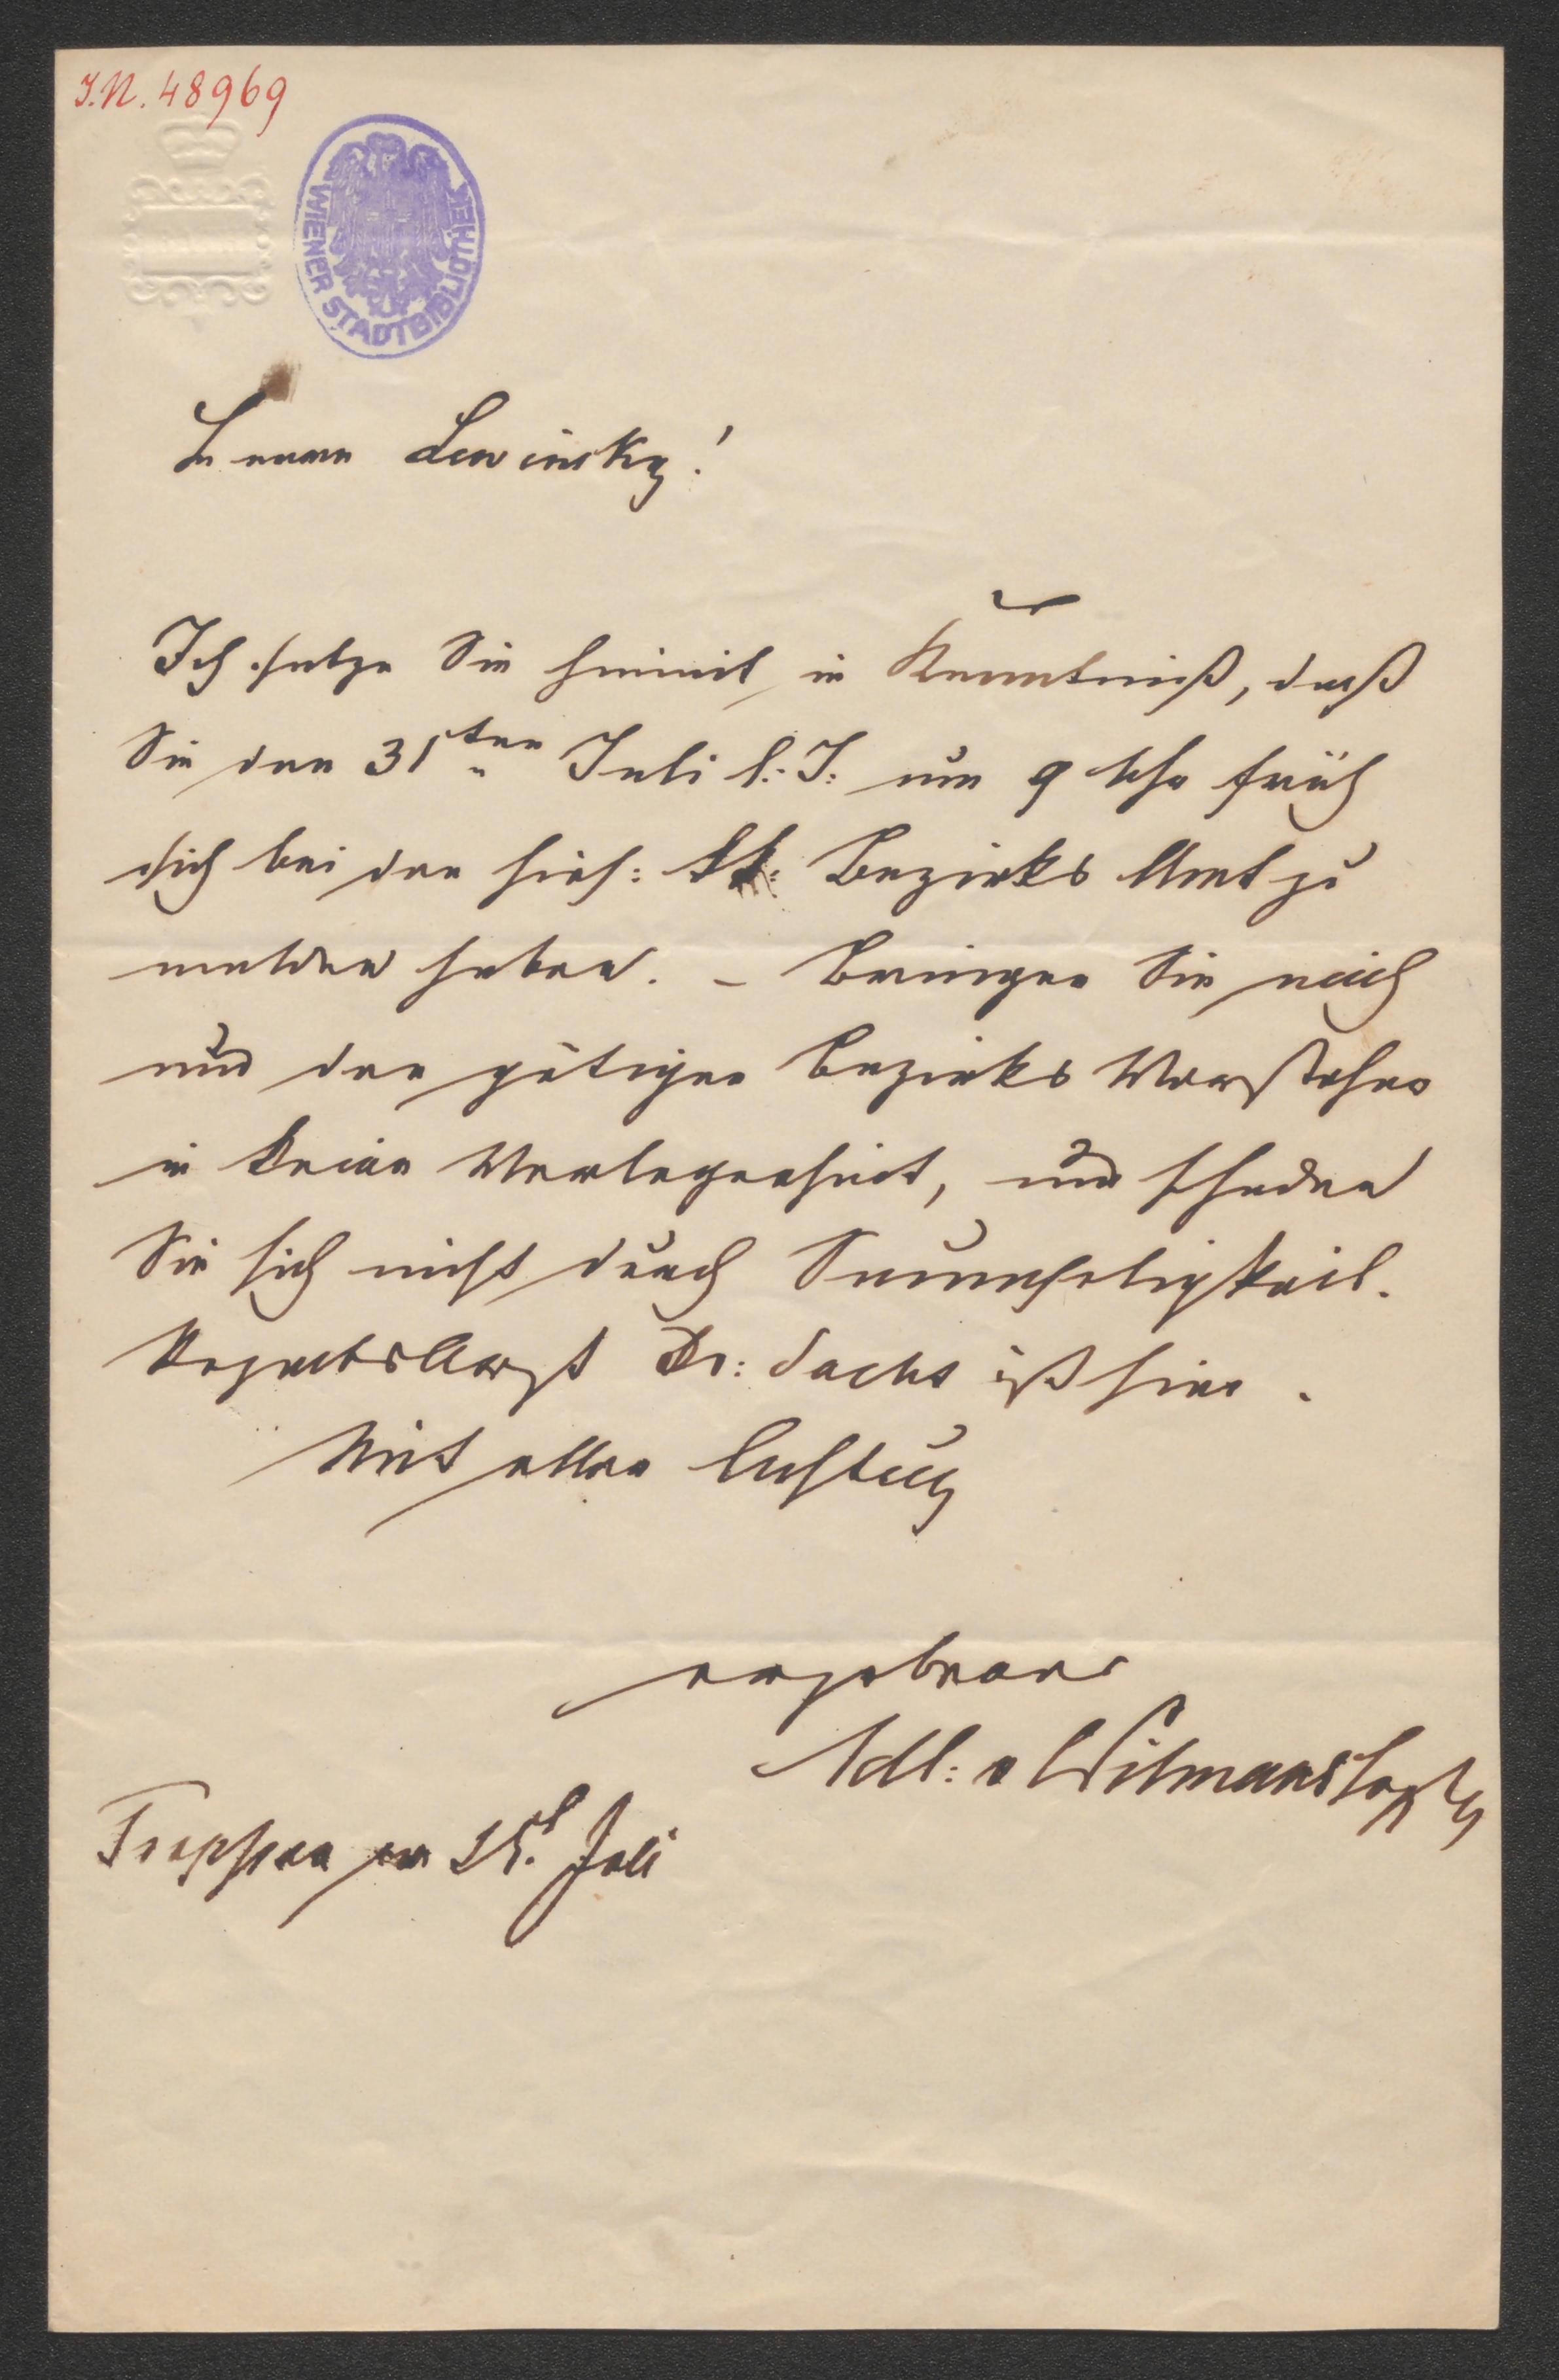 I.N. 48969
WIENER STADTBIBLIOTHEK
Lewinsky!
Ich setze Sie hiemit in Kenntniß, daß
Sie den 31ten Juli l: J: um 9 Uhr früh
sich bei dem hies: kk: Bezirks Amt zu
melden haben. – Bringen Sie mich
und den gütigen Bezirks Vorsteher
in keine Verlegenheit, und schaden
Sie sich nicht durch Saumseligkeit.
Dr: Sachs ist hier.
Mit aller Achtung
ergebener
Adl: v
Troppau am Juli